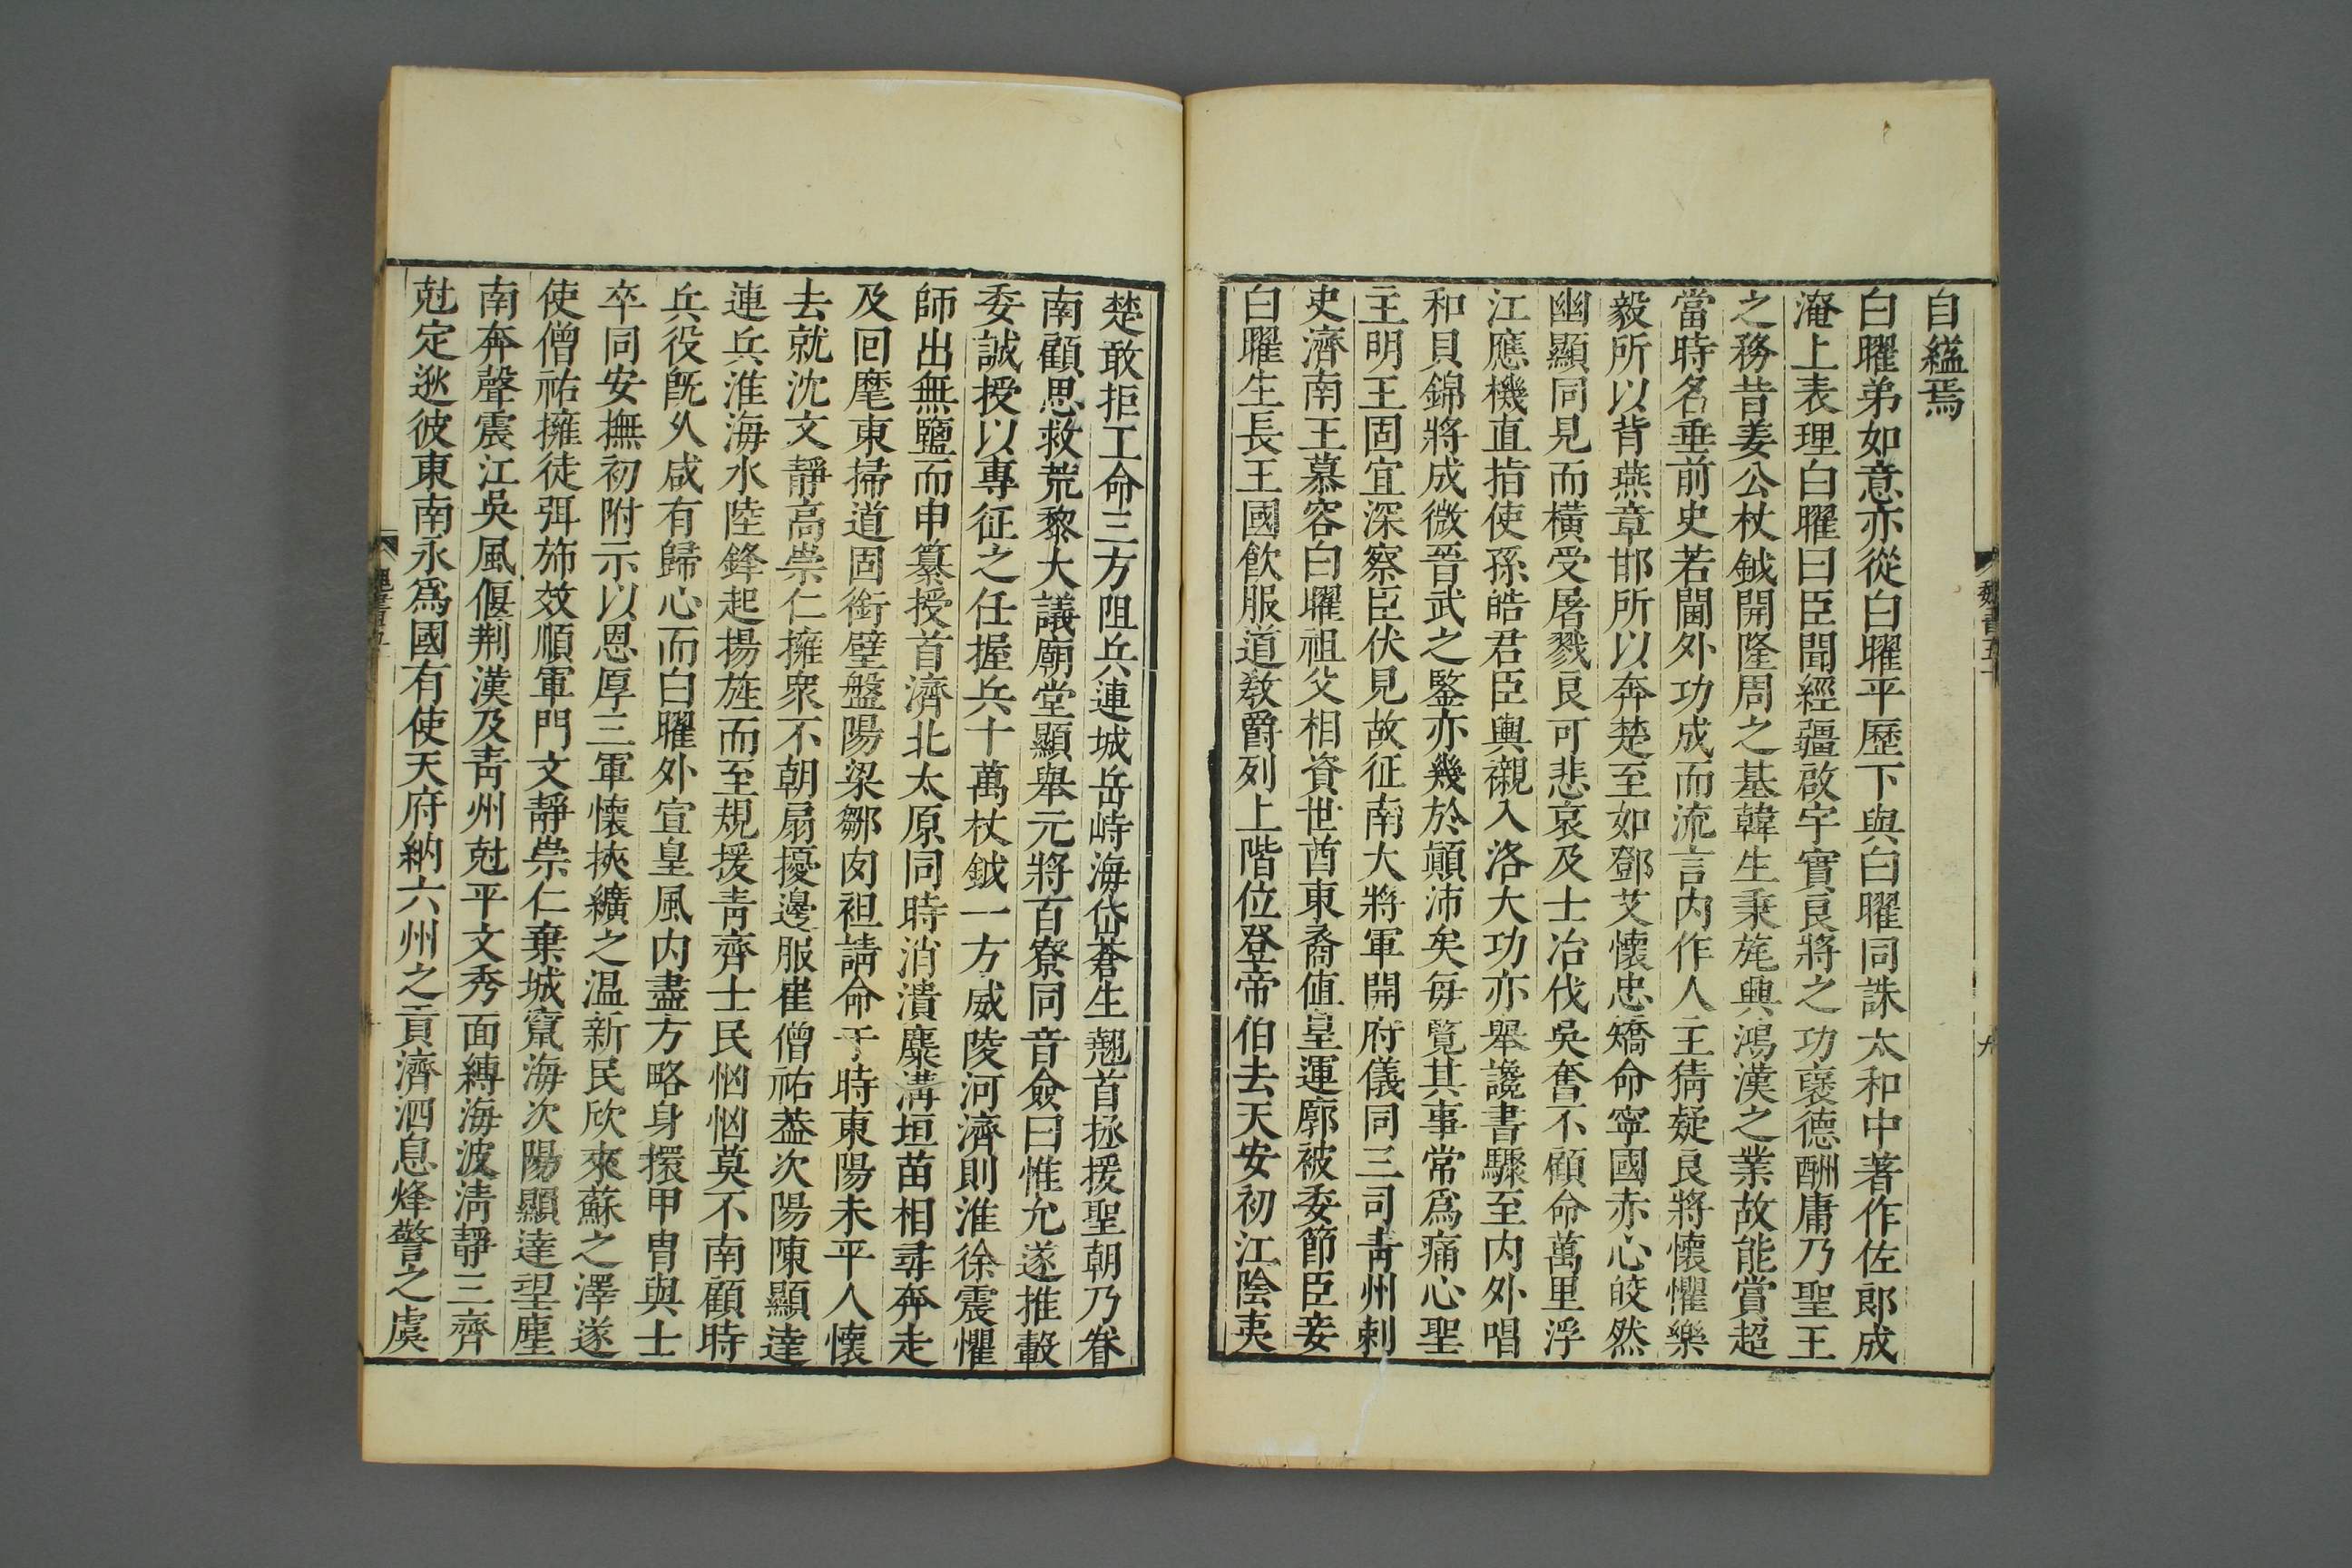 自縊焉
白曜弟如意亦從白曜平歷下與白曜同誅太和中著作佐郎成
淹上表理白曜曰臣聞經疆啟宇實良將之功襃德酬庸乃聖王
之務昔姜公杖鉞開隆周之基韓生秉旄興鴻漢之業故能賞超
當時名垂前史若閫外功成而流言内作人主猜疑良將懷懼樂
毅所以背燕章邯所以奔楚至如鄧艾懷忠矯命寧國赤心皎然
幽顯同見而橫受屠戮良可悲哀及士治伐吳奮不顧命萬里浮
江應機直指使孫皓君臣輿櫬入洛大功亦舉讒書驟至内外唱
和貝錦將成微晉武之鑒亦幾於顛沛矣每覽其事常爲痛心聖
主明王固宜深察臣伏見故征南大將軍開府儀同三司靑州刺
史濟南王慕容白曜祖父相資世酋東裔值皇運廓被委節臣妾
白曜生長王國飮服道敎爵列上階位登帝伯去天安初江陰夷
楚敢拒工命三方阻兵連城岳峙海岱蒼生翹首拯援聖朝乃眷
南顧思救荒黎大議廟堂顯舉元將百寮同音僉曰惟允遂推轂
委誠授以專征之任握兵十萬杖鉞一方威陵河濟則淮徐震懼
師出無鹽而申纂授首濟北太原同時消潰麋溝垣苗相尋奔走
及回麾東掃道固銜璧盤陽梁鄒肉袒請命于時東陽未平人懷
去就沈文靜高崇仁擁衆不朝扇擾邊服崔僧祐葢次陽陳顯達
連兵淮海水陸鋒起揚旌而至規援靑齊士民忷忷莫不南顧時
兵役旣久咸有歸心而白曜外宣皇風内盡方略身擐甲冑與士
卒同安撫初附示以恩厚三軍懷挾纊之温新民欣來蘇之澤遂
使僧祐擁徒弭斾效順軍門文靜崇仁棄城竄海次陽顯達望塵
南奔聲震江吳風偃荆漢及靑州尅平文秀面縛海波淸靜三齊
尅定逖彼東南永爲國有使天府納六州之貢濟泗息烽警之虞
魏書五十
九